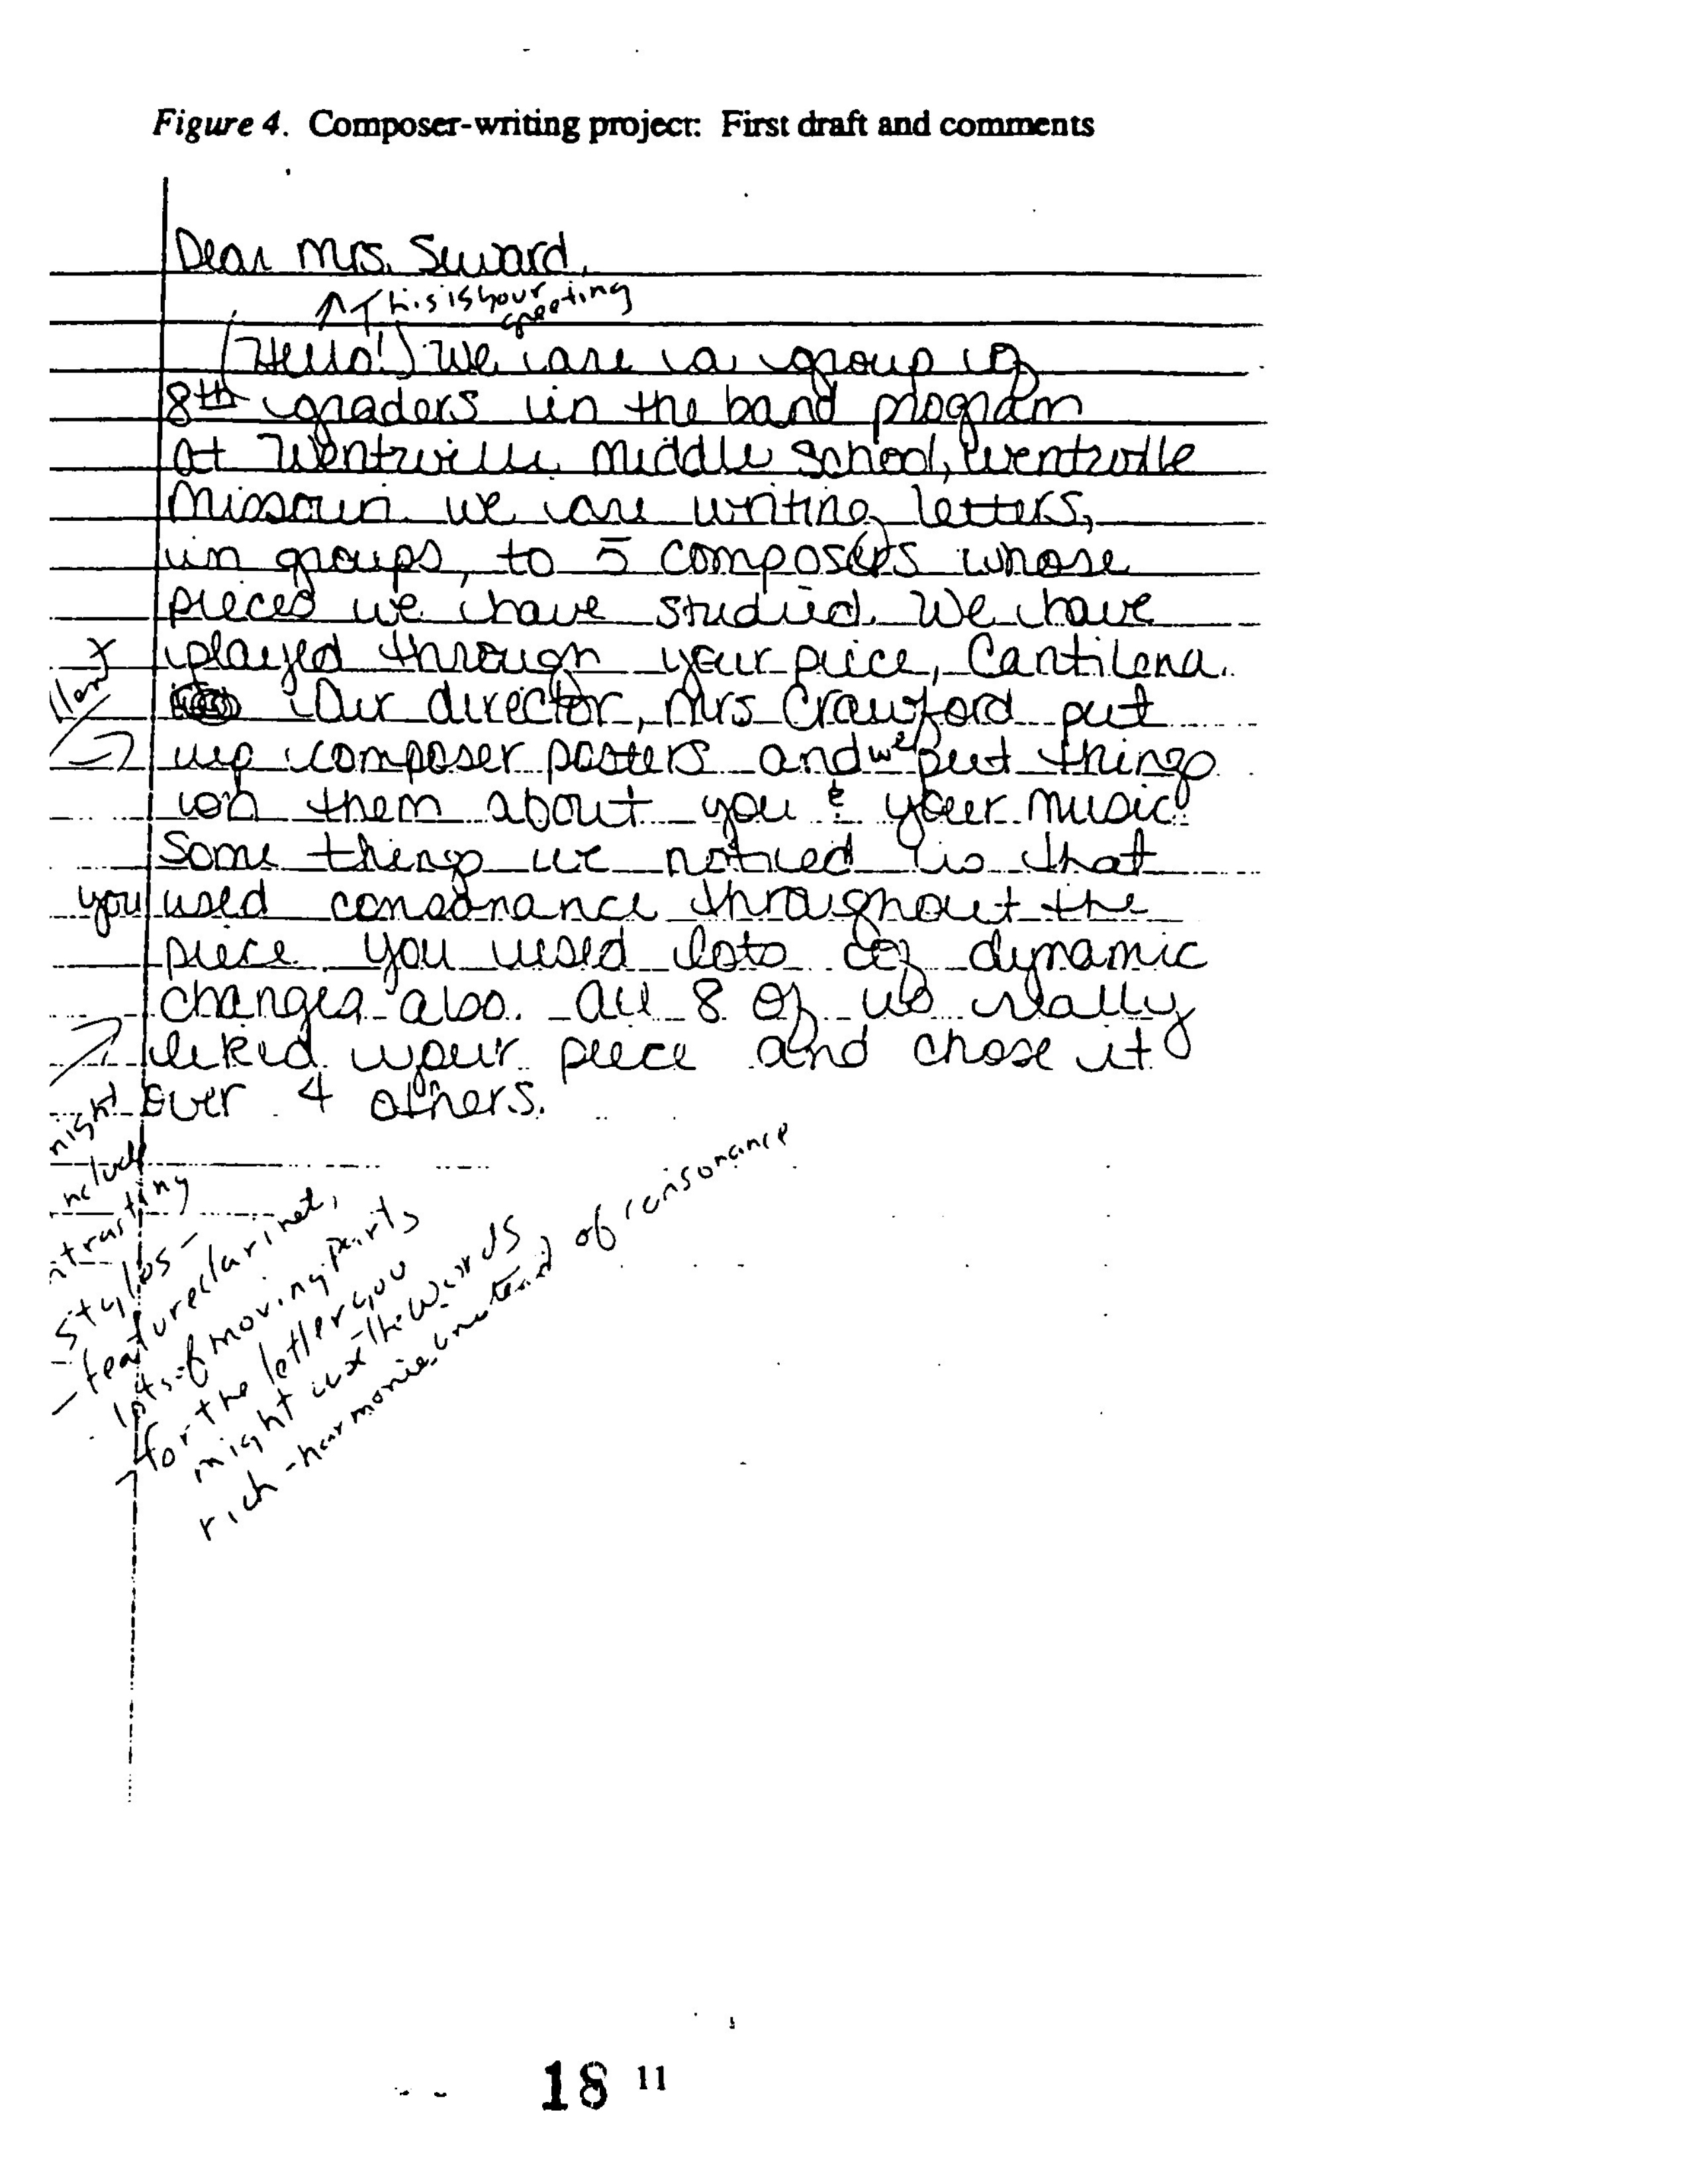 Figure 4. Composer-writing project: First draft and comments
Dear Mrs. Seward,
↑ This is your
greeting
(Hello!) We are a group of
8th graders in the band program
at Wentzville Middle School, Wentzville
Missouri. We are writing letters,
in groups, to 5 composers whose
pieces we have studied. We have
played through your piece, Cantilena.
Our director, Mrs Crawford put
up composer posters and we put things
on them about you & your music.
Some things we noticed is that
you used consonance throughout the
piece. You used lots of dynamic
changes also. All 8 of us really
liked your piece and chose it
over 4 others.
styles -
- feature clarinet,
lots of moving parts
for the letter you
might use the words
rich-harmonies instead of consonance
18 11